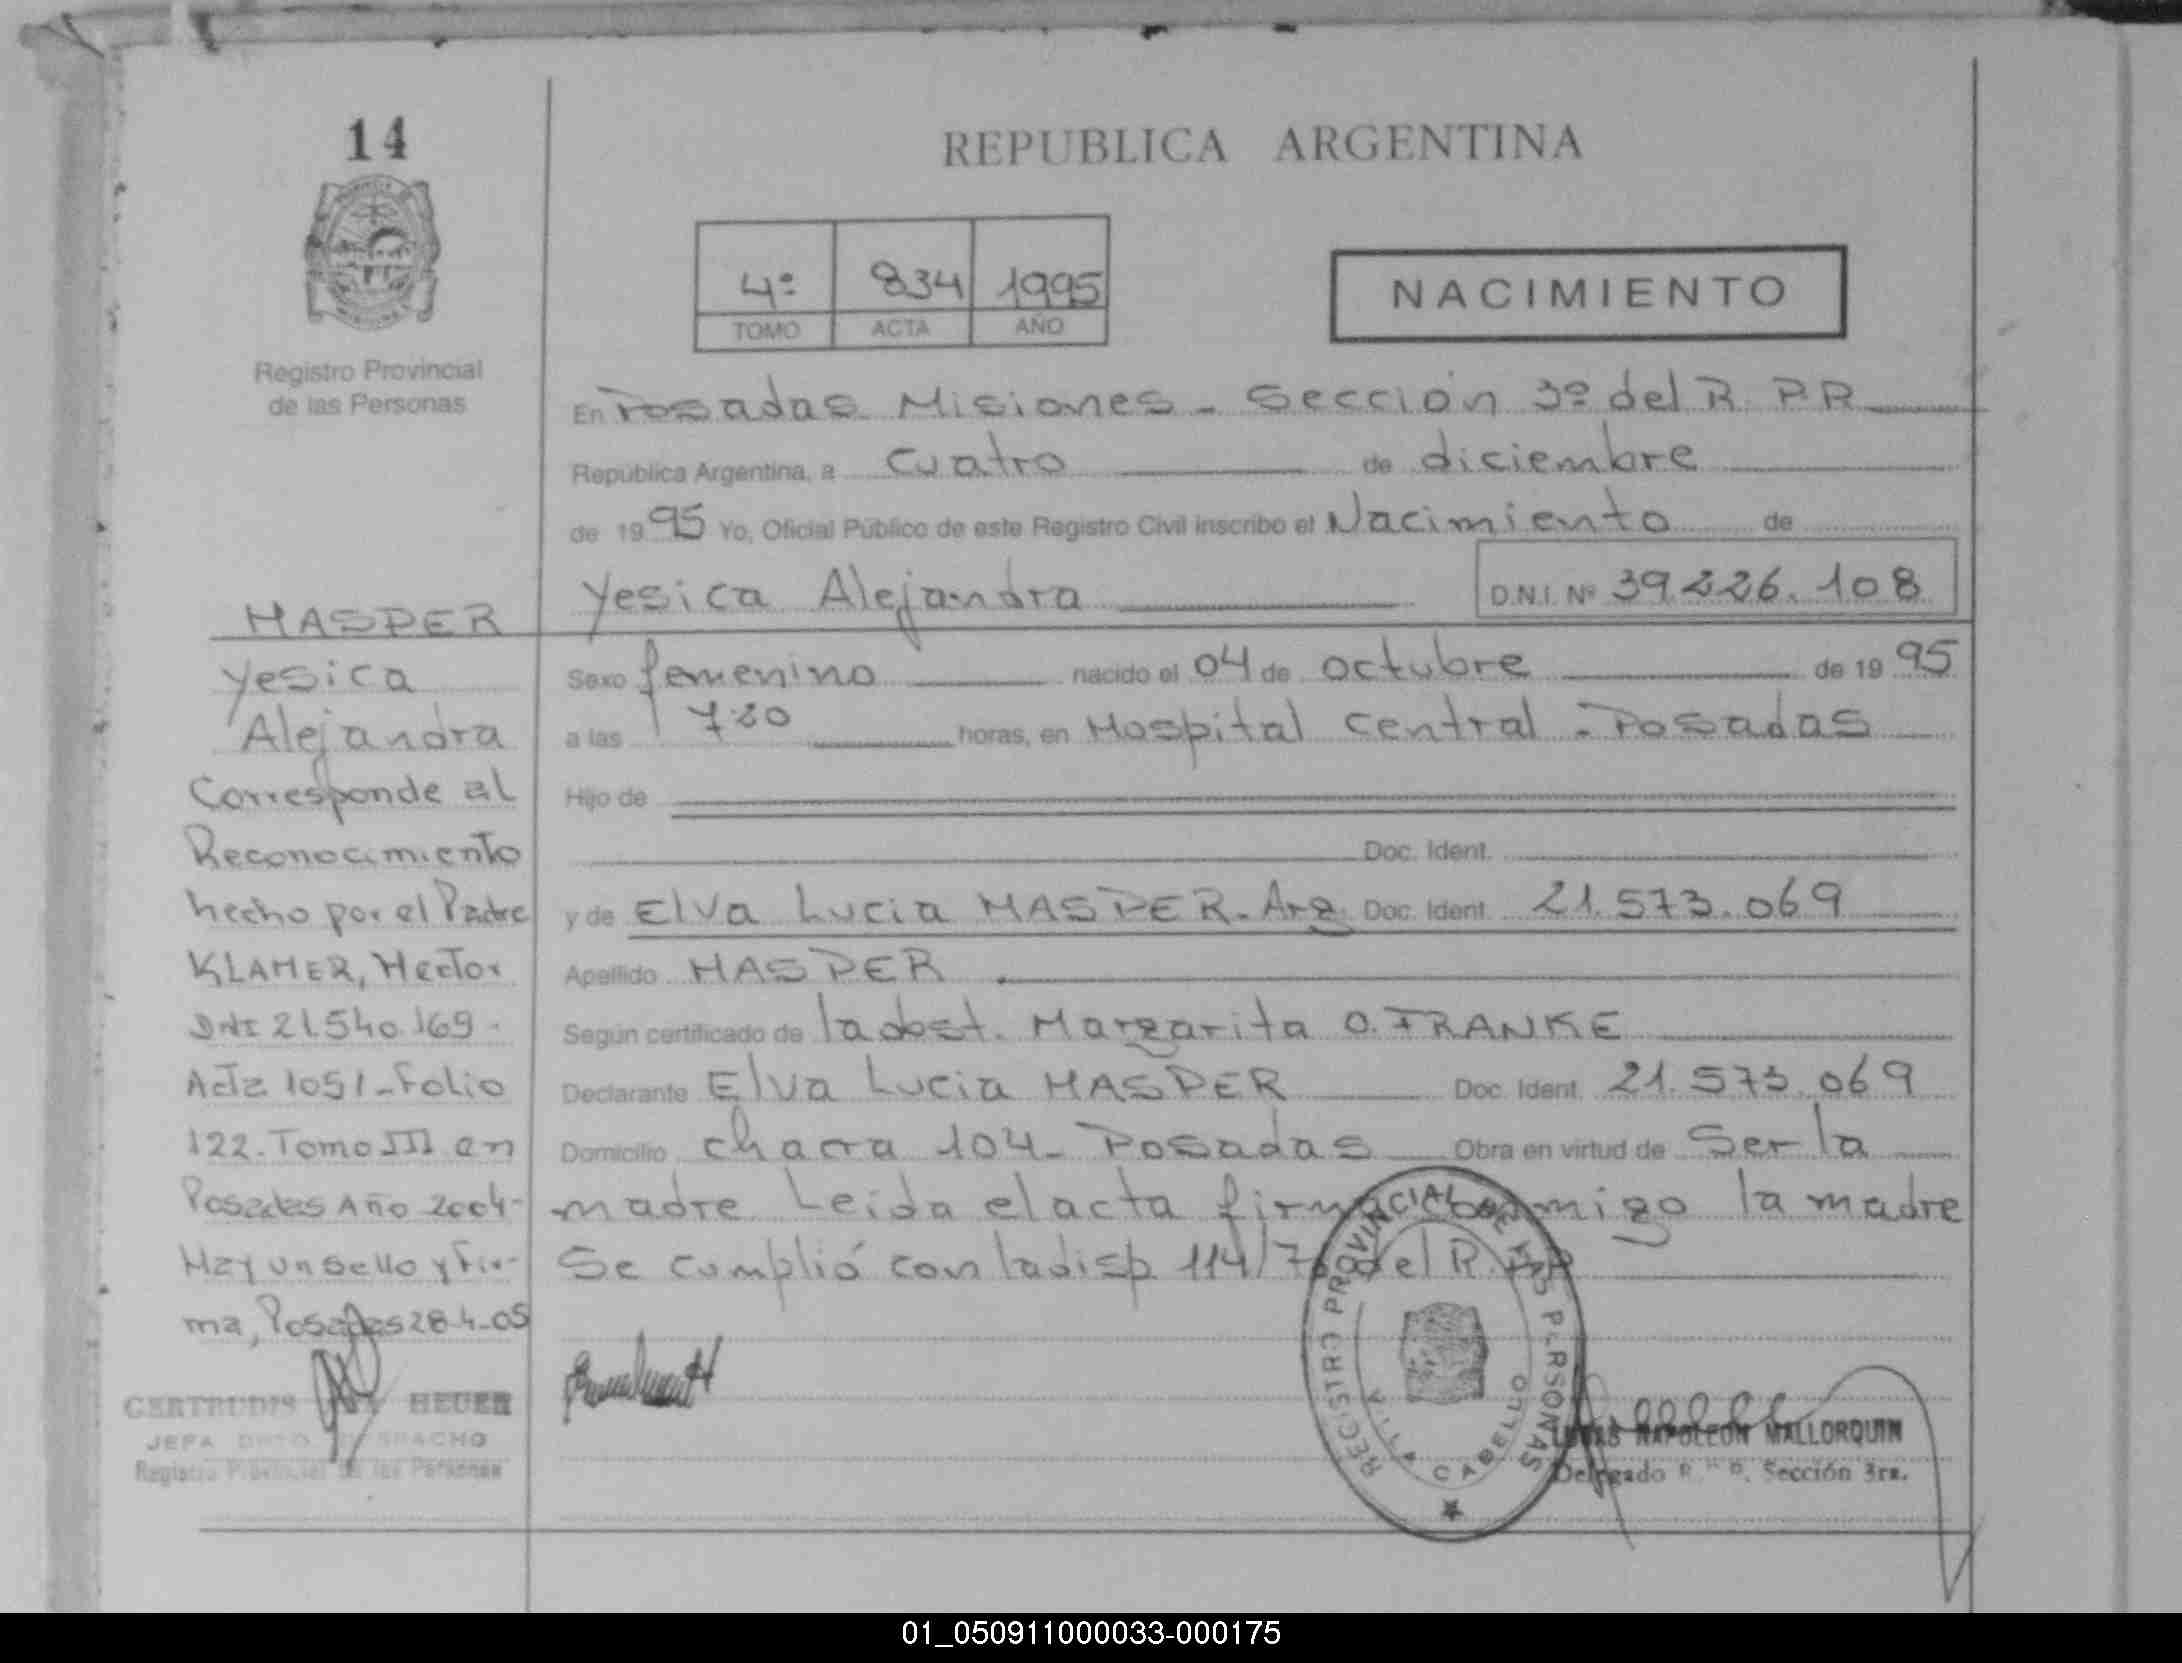 14
REPUBLICA ARGENTINA
4º 834 1995
TOMO ACTA AÑO
NACIMIENTO
Registro Provincial
de las Personas
En Posadas Misiones - Sección 3º del R. P.P.
República Argentina, a cuatro de diciembre
de 1995 Yo, Oficial Público de este Registro Civil inscribo el Nacimiento de
Yesica Alejandra D.N.I. Nº 39.226.108
Sexo femenino nacido el 04 de octubre de 1995
a las 7:20 horas, en Hospital central - Posadas
Hijo de
Doc. Ident.
y de Elva Lucia MASPER. Arg. Doc. Ident. 21.573.069
Apellido MASPER
Según certificado de la obst. Margarita O. FRANKE
Declarante Elva Lucia MASPER Doc. Ident. 21.573.069
Domicilio chacra 104- Posadas Obra en virtud de Ser la
madre Leida el acta firma conmigo la madre
Se cumplió con la disp 114/ del R.
MASPER
Yesica
Alejandra
Corresponde al
Reconocimiento
hecho por el Padre
KLAMER, Hector
DNI 21.540.169-
Acta 1051-Folio
122.Tomo III en
Posadas Año 2004-
Hay un Sello y Fir-
ma, Posadas 28-4-05
GERTRUDIS HEUER
JEFA DPTO DESPACHO
Registro Provincial de las Personas
REGISTRO PROVINCIAL DE LAS PERSONAS
VILLA CABELLO
LUCAS NAPOLEON MALLORQUIN
Delegado R.P.P. Sección 3ra.
01_050911000033-000175